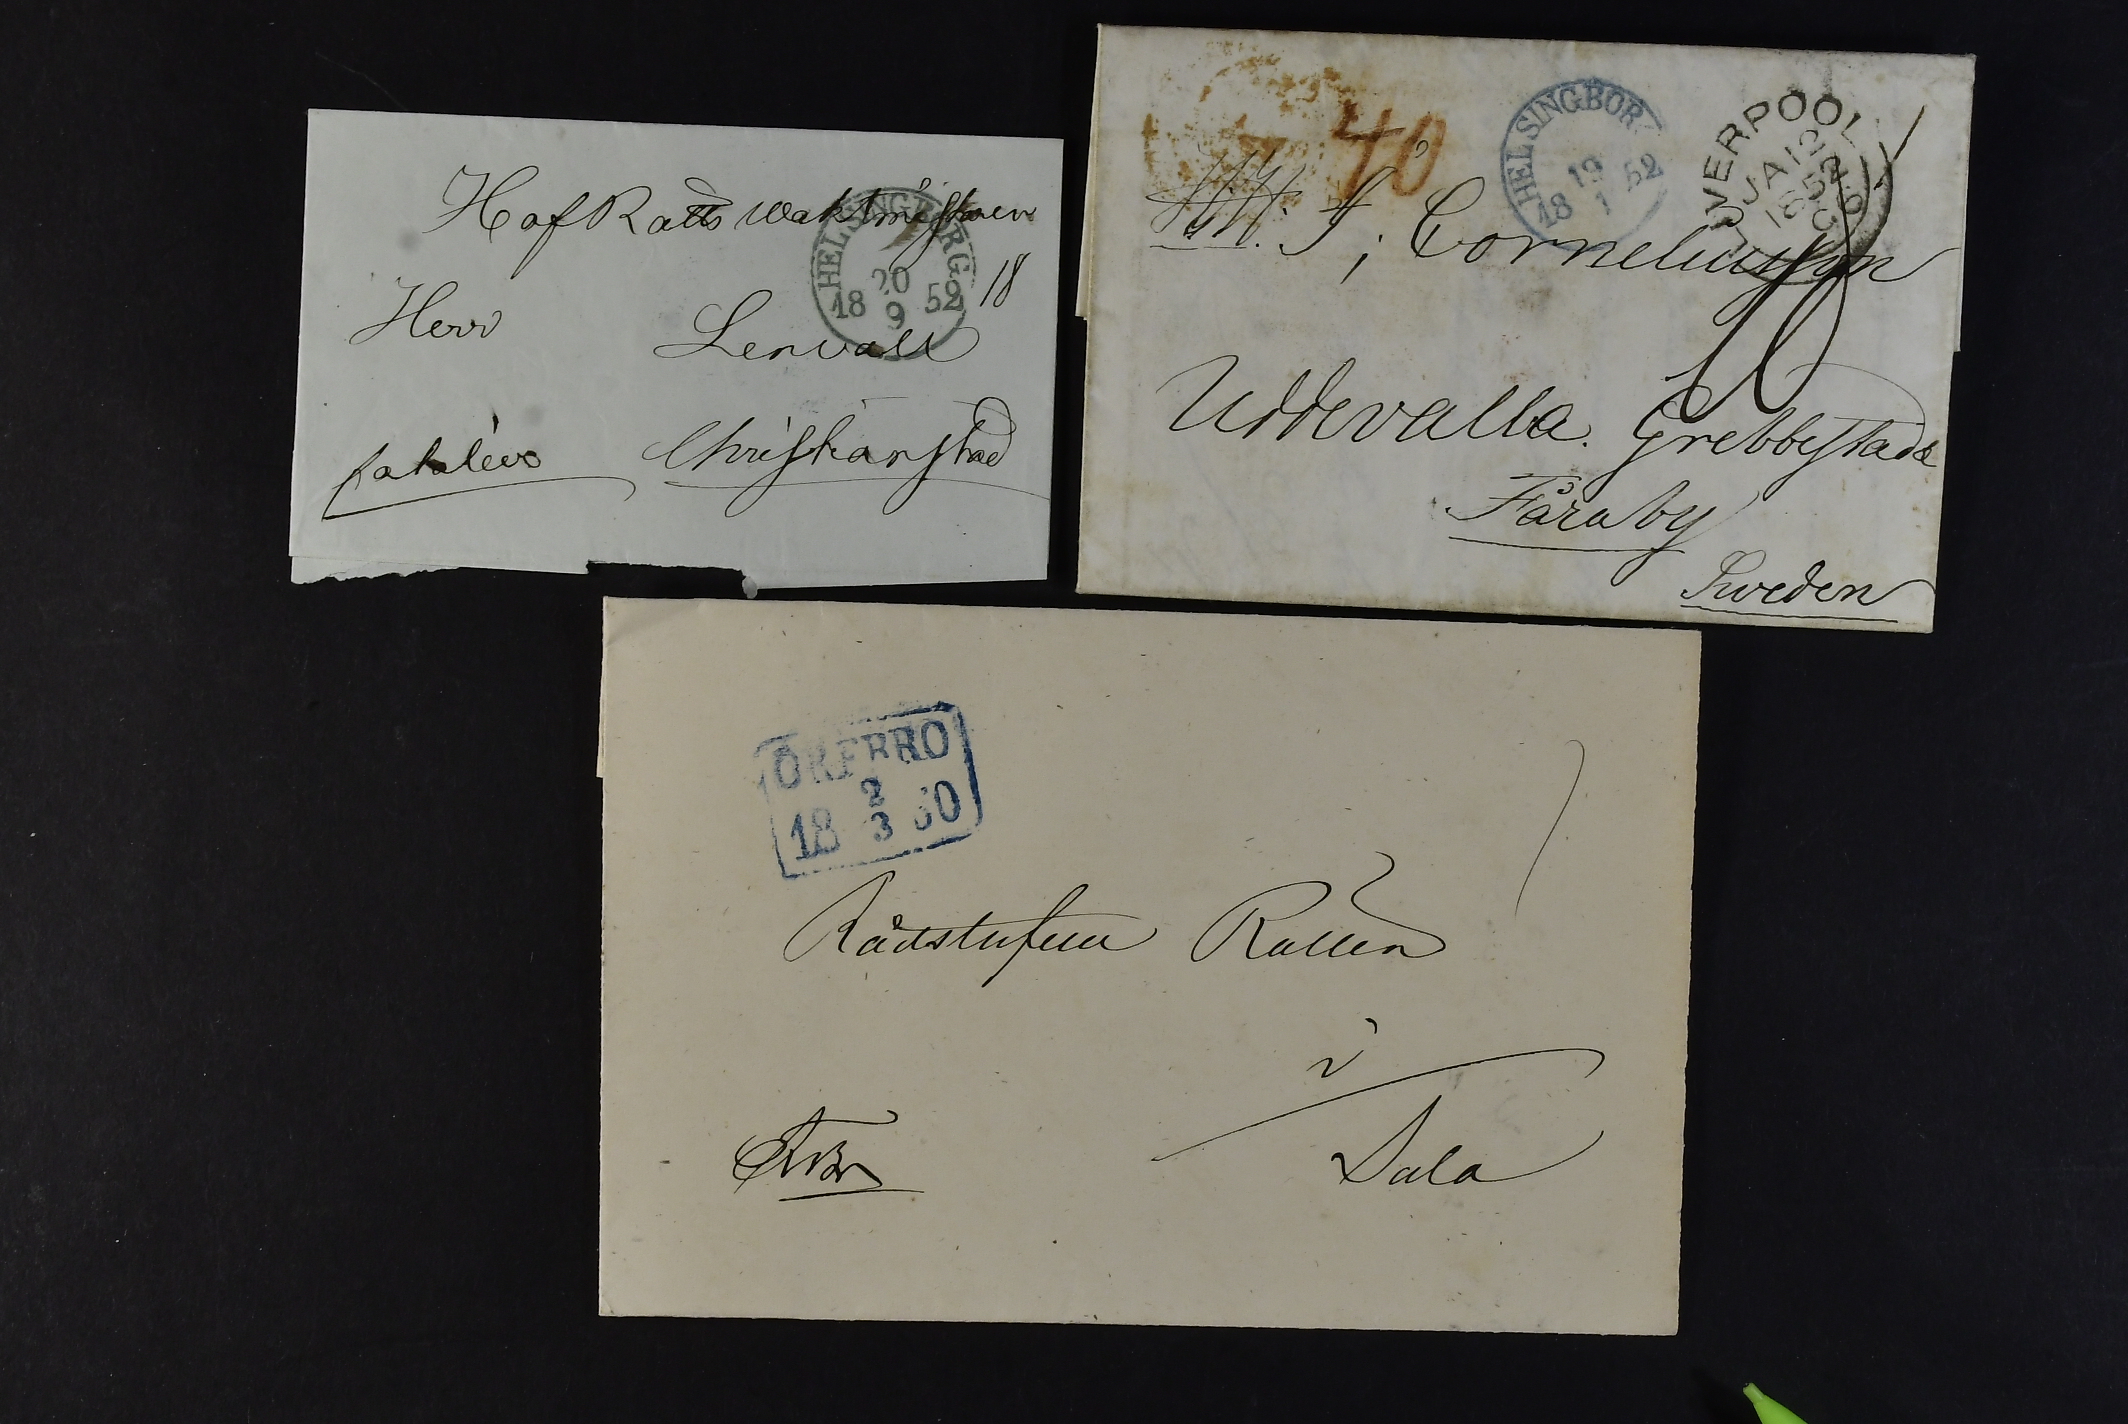 HofRatts waktmästaren
HELSINGBORG
20
18 9 52
18
Herr Lenvall
Christianstad
40
HELSINGBOR
19
18 1 52
LIVERPOOL
JA 12
1852
Corneliusson
10
Uddevalla. Grebbestad
Fåraby
Sweden
ÖREBRO
2
18 3 60
Rådstufvu Rätten
i
Sala